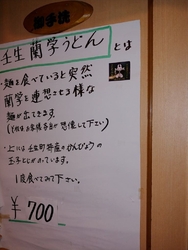 お手洗
壬生 蘭学うどん とは
・麺を食べていると突然
蘭学を連想させる様な
麺が出てきます。
・上には壬生町特産のかんぴょうの
玉子とじがのっています。
1度食べてみて下さい。
¥700